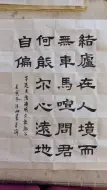 結廬在人境而
無車馬喧問君
何能尔心遠地
自偏